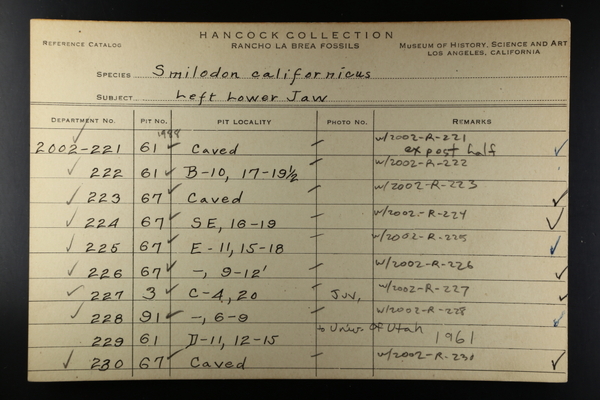 HANCOCK COLLECTION
REFERENCE CATALOG RANCHO LA BREA FOSSILS MUSEUM OF HISTORY, SCIENCE AND ART
LOS ANGELES, CALIFORNIA
SPECIES Smilodon californicus
SUBJECT Left Lower Jaw
DEPARTMENT NO. PIT NO. PIT LOCALITY PHOTO NO. REMARKS
1988
w/2002-R-221
2002-221 61 Caved — ex post half
222 61 B-10, 17-19½ — w/2002-R-222
223 67 Caved — w/2002-R-223
224 67 SE, 16-19 — w/2002-R-224
225 67 E-11, 15-18 — w/2002-R-225
226 67 -, 9-12' — w/2002-R-226
227 3 C-4, 20 w/2002-R-227
228 91 -, 6-9 — w/2002-R-228
229 61 D-11, 12-15 to Univ. of Utah 1961
230 67 Caved — w/2002-R-230